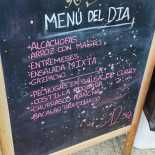 MENÚ DEL DIA
- ALCACHOFAS
- ARROZ CON MAGRO
- ENTREMESES
- ENSALADA MIXTA
- GAZPACHO
- PECHUGAS EN SALSA DE CURRY
- COSTILLA
- CHURRASCO
- BACALAO